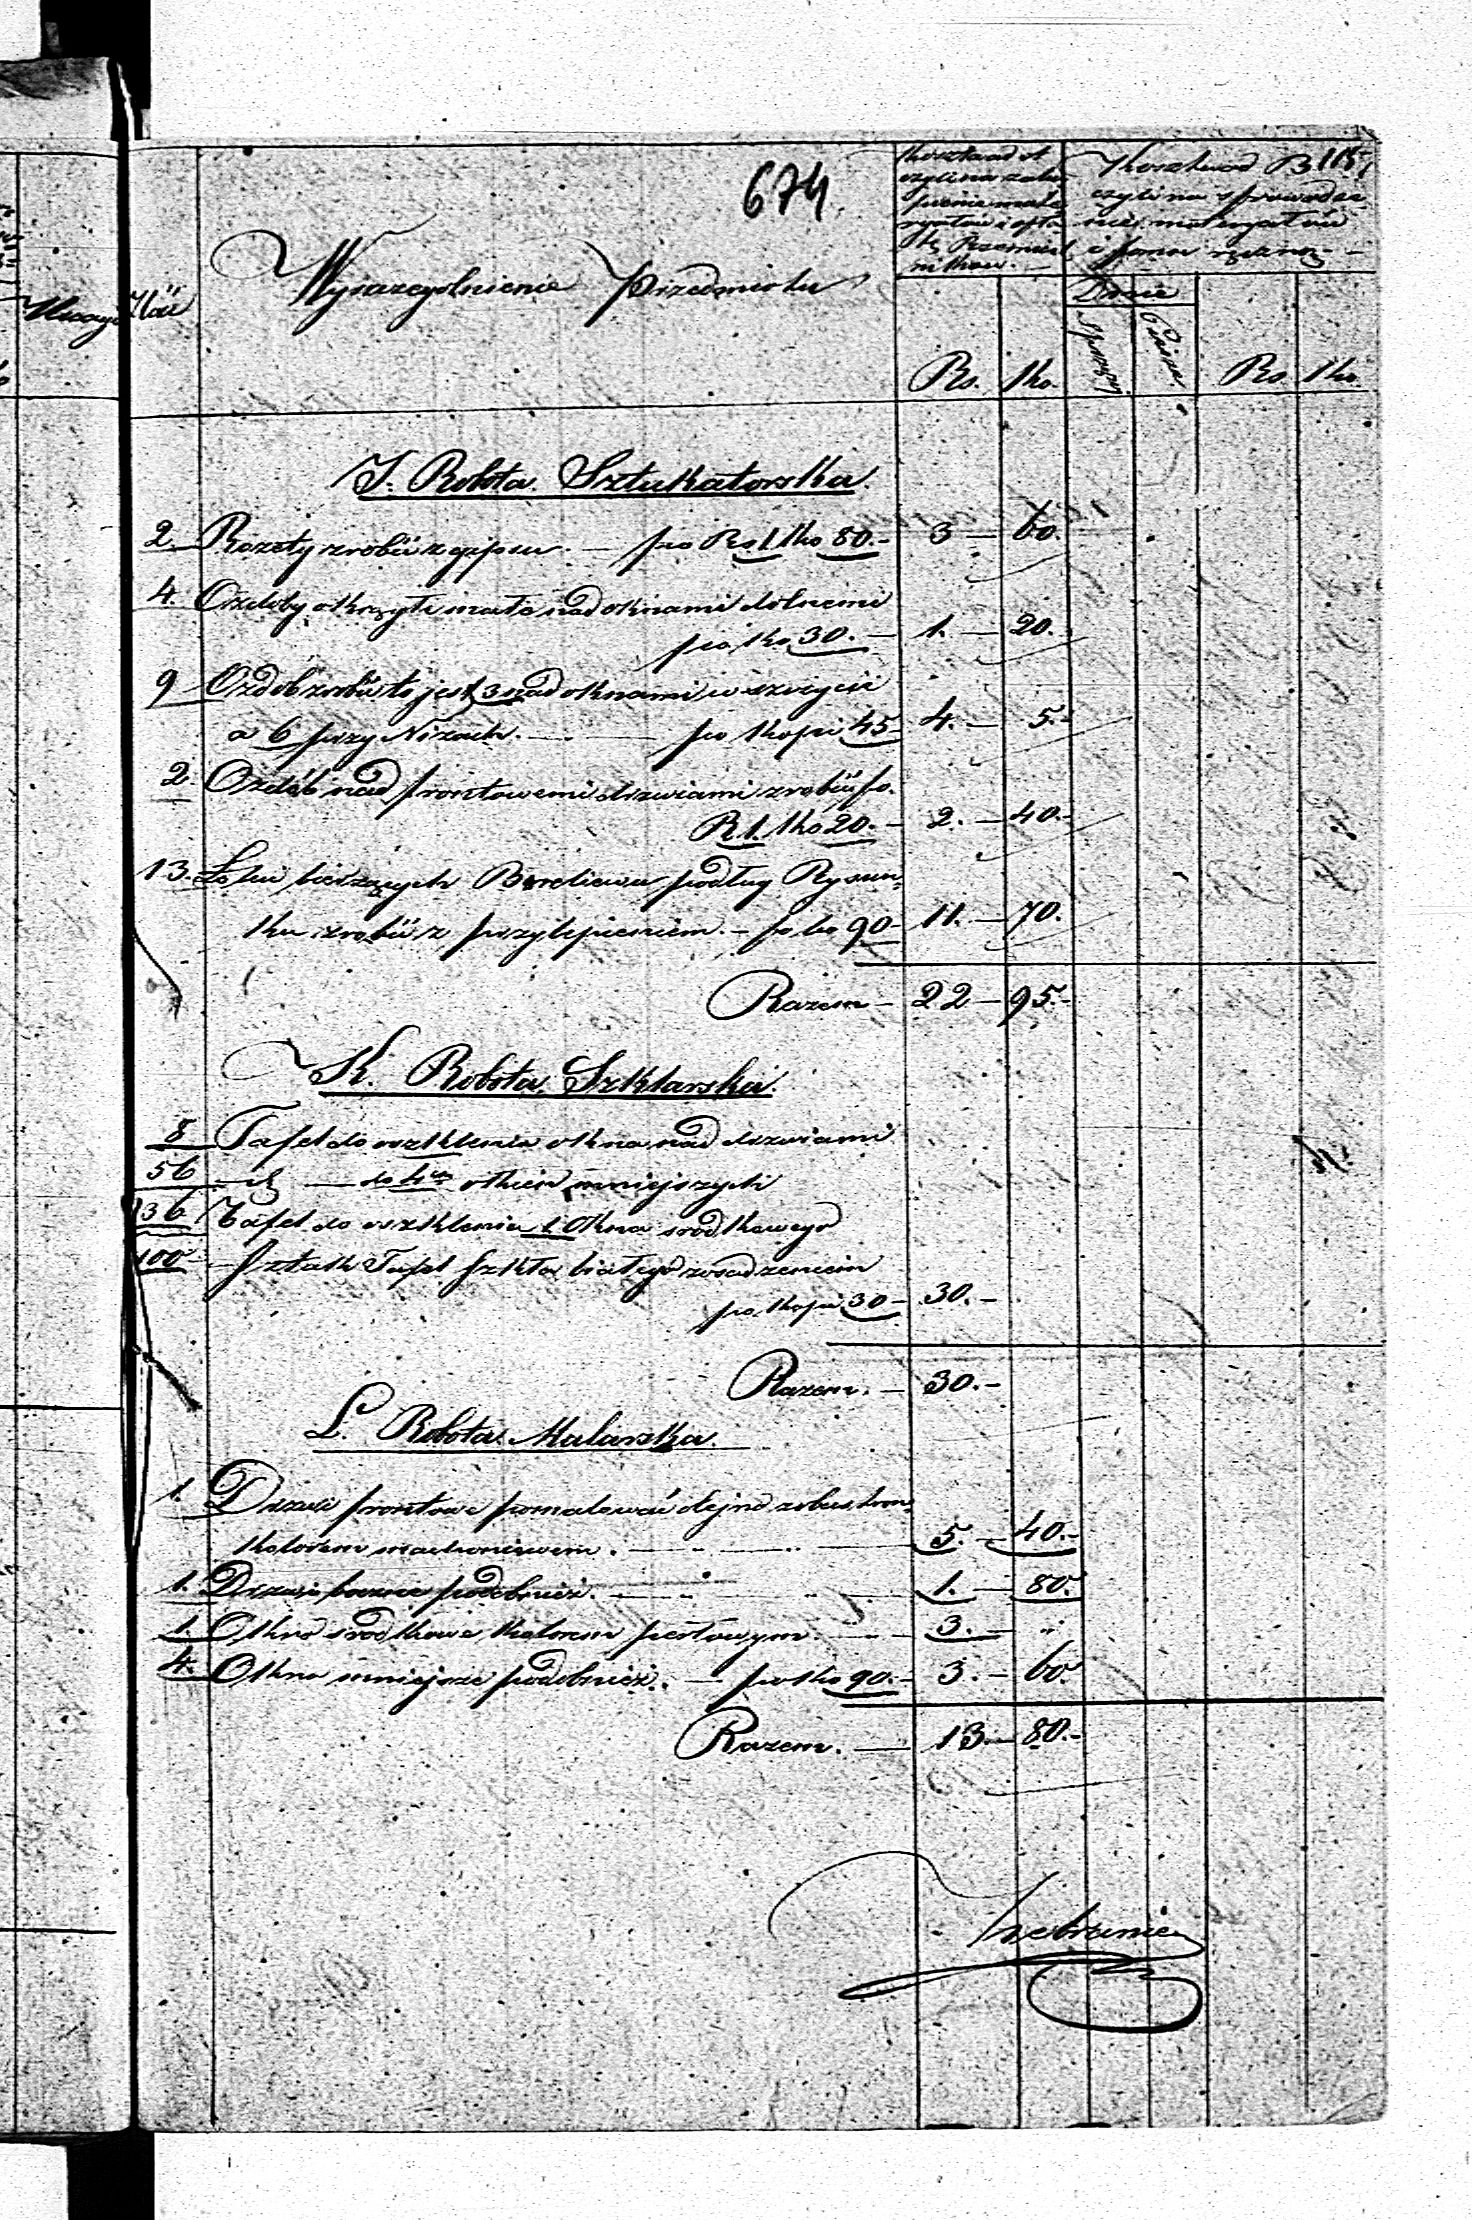 674
115
Koszta ad A
czyli na zaku-
pienie mate-
ryałów i opła-
tę Rzemieśl-
ników.
Koszta ad B
czyli na sprowadze-
nie materyałów
i pomoc ręczną
Ilość
Wyszczególnienie Przedmiotu
Dnie
Sprzężaj
Piesze
Rs. Ko. Rs Ko
J. Robota Sztukatorska.
2 Rozety zrobić z gipsu. — po Rs 1 Ko 80.- 3 — 60.
4. Ozdoby okrągłe małe nad oknami dolnemi
po Ko. 30. — 1. — 20.
9 Ozdob zrobić to jest 3 nad oknami w szczycie
a 6 przy Nizach. — po Kopi 45- 4. — 5.-
2. Ozdób nad frontowemi drzwiami zrobić po.
R 1. Ko 20. - 2. — 40.-
13. Łokci bieżących podług Rysun-
ku zrobić z przylepieniem. - po ko 90- 11. — 70.
Razem — 22 — 95.-
K. Robota Szklarska.
8 Tafel do oszklenia okna nad drzwiami
56 — d — do 4ch okien mniejszych
36 Tafel do oszklenia 1 Okna środkowego
100 — Sztuk Tafel szkła białego z osadzeniem
po Kopi 30 - 30. -
Razem. — 30. -
L. Robota Malarska.
1. Drzwi frontowe pomalować olejno z obu stron
kolorem machoniowem. — 5. — 40.-
1. Drzwi boczne podobnież. — 1. — 80.
1. Okno środkowe kolorem perłowym. — 3. — "
4. Okna mniejsze podobnież. — po Ko 90. - 3. — 60.
Razem. — 13. — 80.-